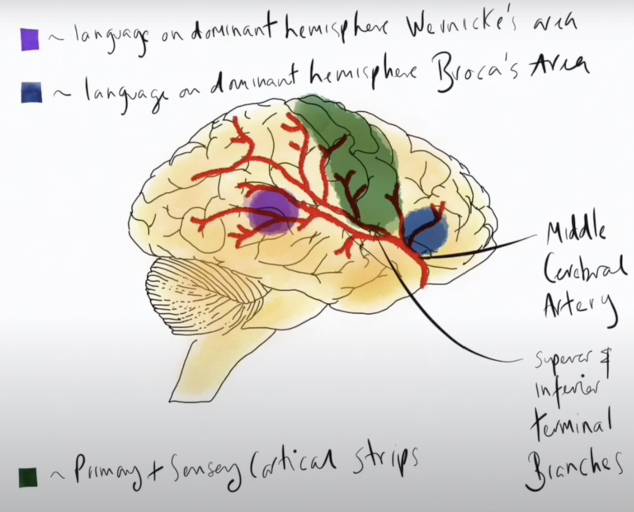 ~ language on dominant hemisphere Wernicke's area
~ language on dominant hemisphere Broca's Area
Middle
Cerebral
Artery
Superior &
Inferior
terminal
Branches
~ Primary + Sensory Cortical strips